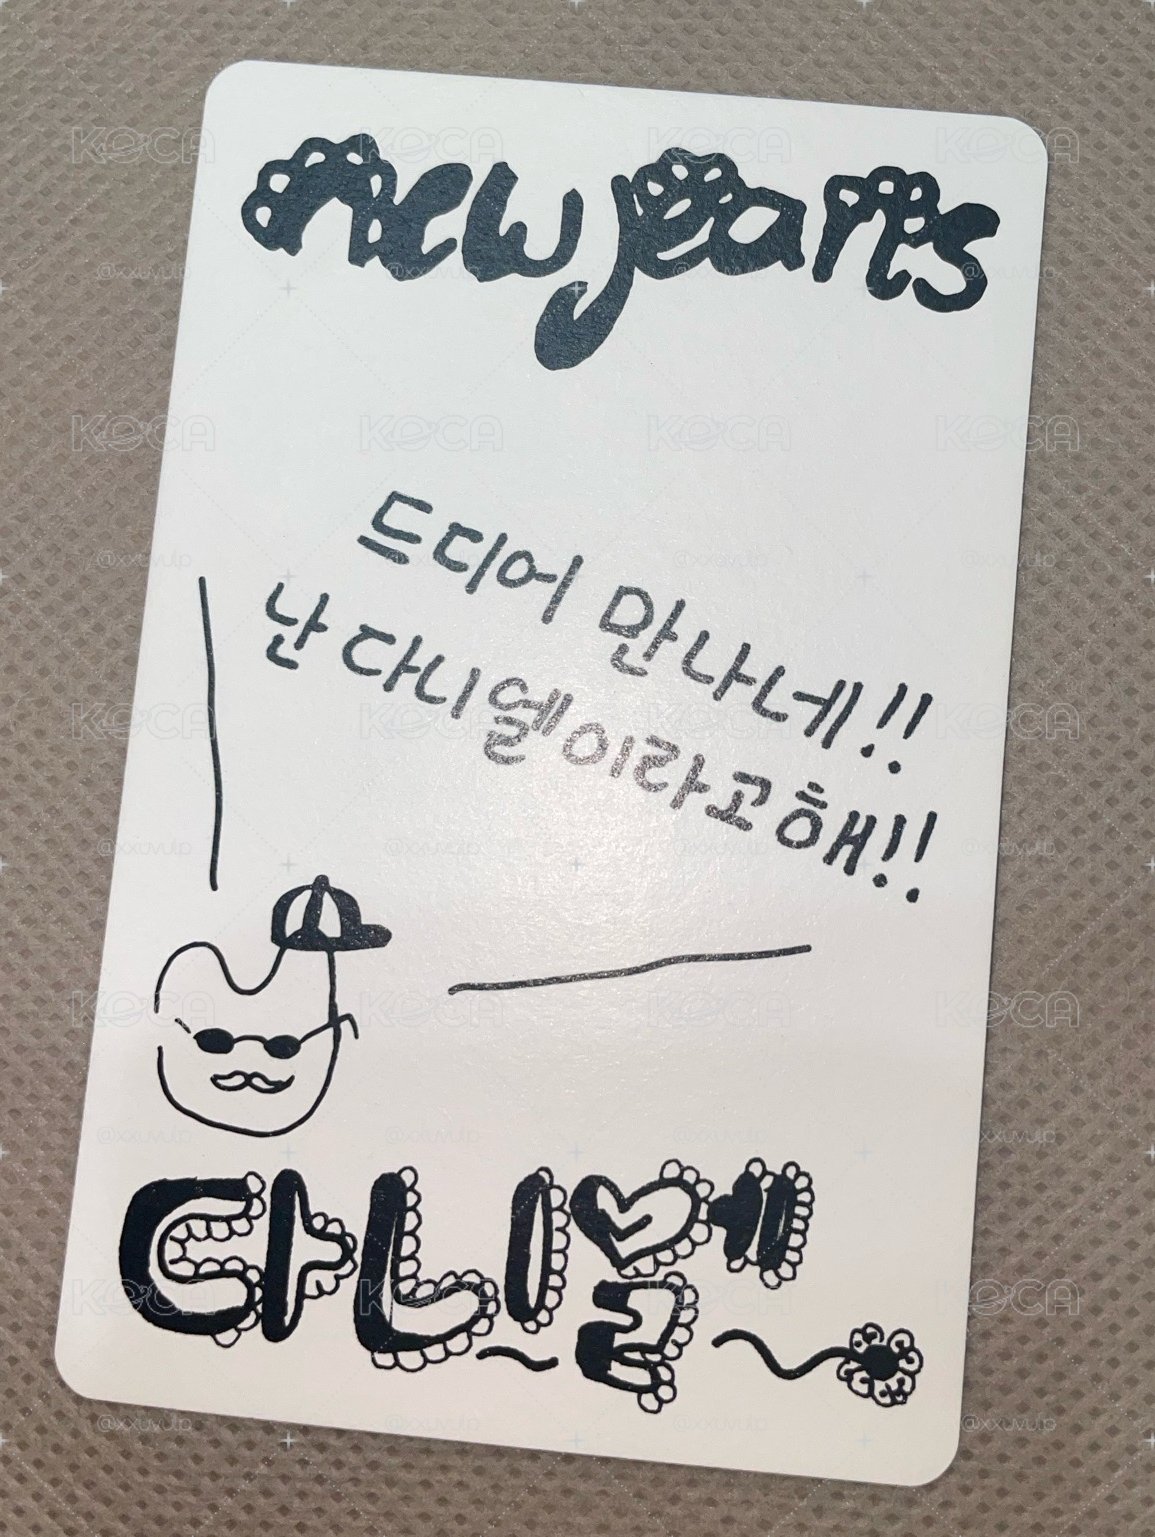 newjeans
드디어 만나네!!
난 다니엘이라고해!!
다니엘
KOCA
@xxuvu.lp